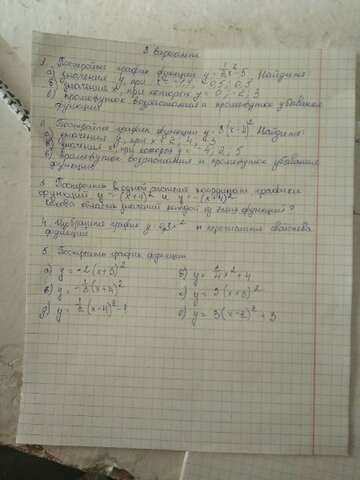 2 вариант
1. Постройте график функции y = 1/2 x² - 5. Найдите
а) значения y, при x = 0,5; 0,5
б) значения x, при которых y = 0; -2; 3
в) промежуток возрастания и промежуток убывания
функции
2. Постройте график функции y = 3(x-2)² Найдите:
а) значения y, при x = 2, 4,
б) значения x, при котором y = 2; 5
в) промежуток возрастания и промежуток убывания
функции
3. Построить в одной системе координат графики
функций y = -(x+4)² и y = -(x+4)²
область значений каждой из этих функций?
4. график y = x² и перечислить свойства
функции
5. Построить график функции
а) y = -2(x+3)² б) y = 1/4 x² + 4
в) y = -1/3 (x+2)² г) y = 2(x+3)²
д) y = 1/2 (x-4)² - 1 е) y = 3(x-2)² + 3